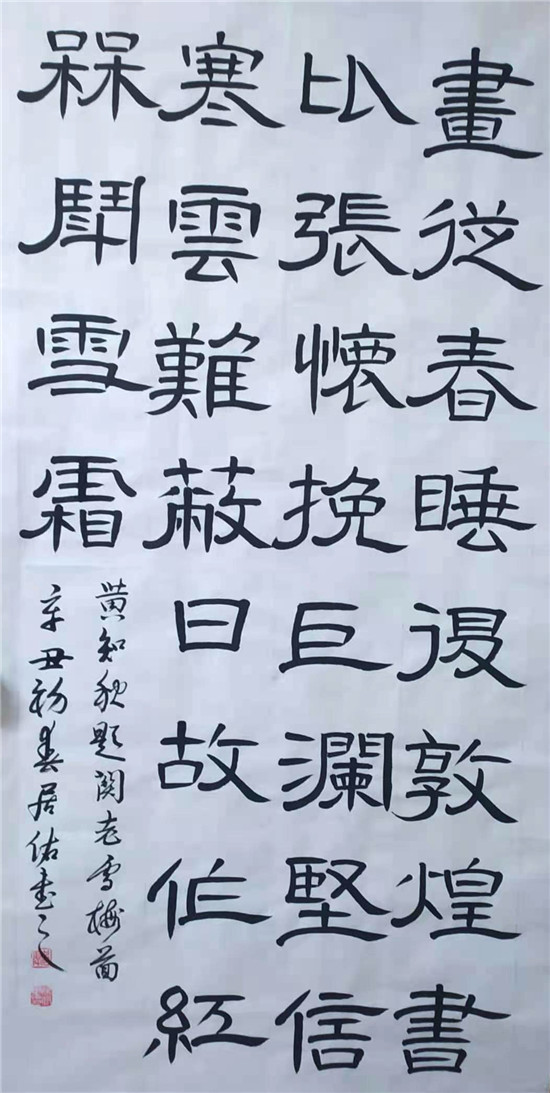 畫從春睡復敦煌書
比張懷挽巨瀾堅信
寒雲難蔽日故作紅
槑鬥雪霜
黃知秋題關老雪梅圖
辛丑初春居佑書之